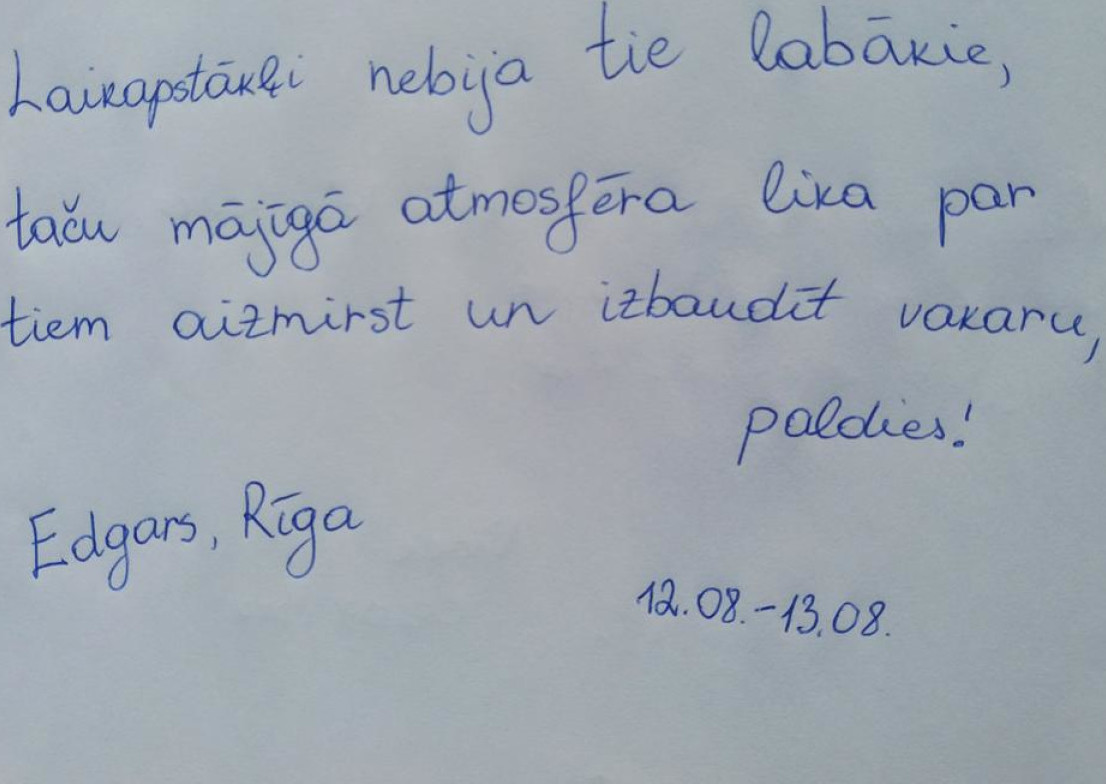 Laikapstākļi nebija tie labākie,
taču mājīgā atmosfēra lika par
tiem aizmirst un izbaudīt vakaru,
paldies!
Edgars, Rīga
12.08.-13.08.